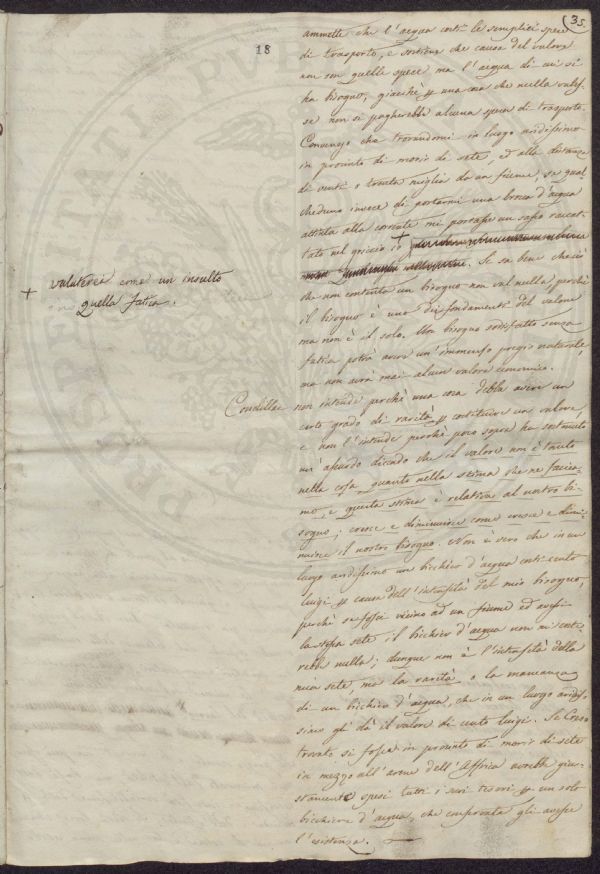 35.
18
ammette che l'acqua costi le semplici spese
di trasporto, e sostiene che causa del valore
non son quelle spese ma l'acqua di cui si
ha bisogno, giacchè p una cosa che nulla vales-
se non si pagherebbe alcuna spesa di trasporto.
Convengo che trovandomi in luogo aridissimo
in procinto di morir di sete, ed alla distanza
di venti o trenta miglia da un fiume, se qual
cheduno invece di portarmi una brocca d'acqua
attinta alla corrente mi portasse un sasso raccat-
tato nel greto io +
. Se sa bene che ciò
che non contenta un bisogno non val nulla, perchè
il bisogno è uno dei fondamenti del valore
ma non è il solo. Un bisogno soddisfatto senza
fatica potrà avere un'immenso pregio naturale,
ma non avrà mai alcun valore economico.
+ valuterei come un insulto
quella fatica.
Condillac non intende perchè una cosa debba avere un
certo grado di rarità p costituire un valore,
e non l'intende perchè poco sopra ha sostenuto
un'assurdo dicendo che il valore non è tanto
nella cosa quanto nella stima che ne faccia-
mo, e questa stima è relativa al nostro bi-
sogno; cresce e diminuisce come cresce e dimi-
nuisce il nostro bisogno. Non è vero che in un
luogo aridissimo un bicchier d'acqua costi cento
luigi p causa dell'intensità del mio bisogno,
perchè se fossi vicino ad un fiume ed avessi
la stessa sete il bicchier d'acqua non mi coste-
rebbe nulla; dunque non è l'intensità della
mia sete, ma la rarità o la mancanza
di un bicchier d'acqua, che in un luogo aridis-
simo gli dà il valore di cento luigi. Se Creso
trovato si fosse in procinto di morir di sete
in mezzo all'arene dell'Affrica avrebbe giu-
stamente spesi tutti i suoi tesori p un solo
bicchiere d'acqua, che conservata gli avesse
l'esistenza.